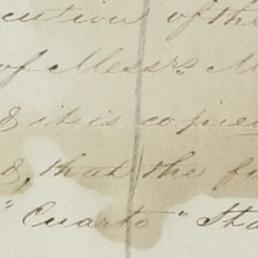 cution of the
of Messrs. M
& it is copied
&, that the fu
" Cuarto " Sta